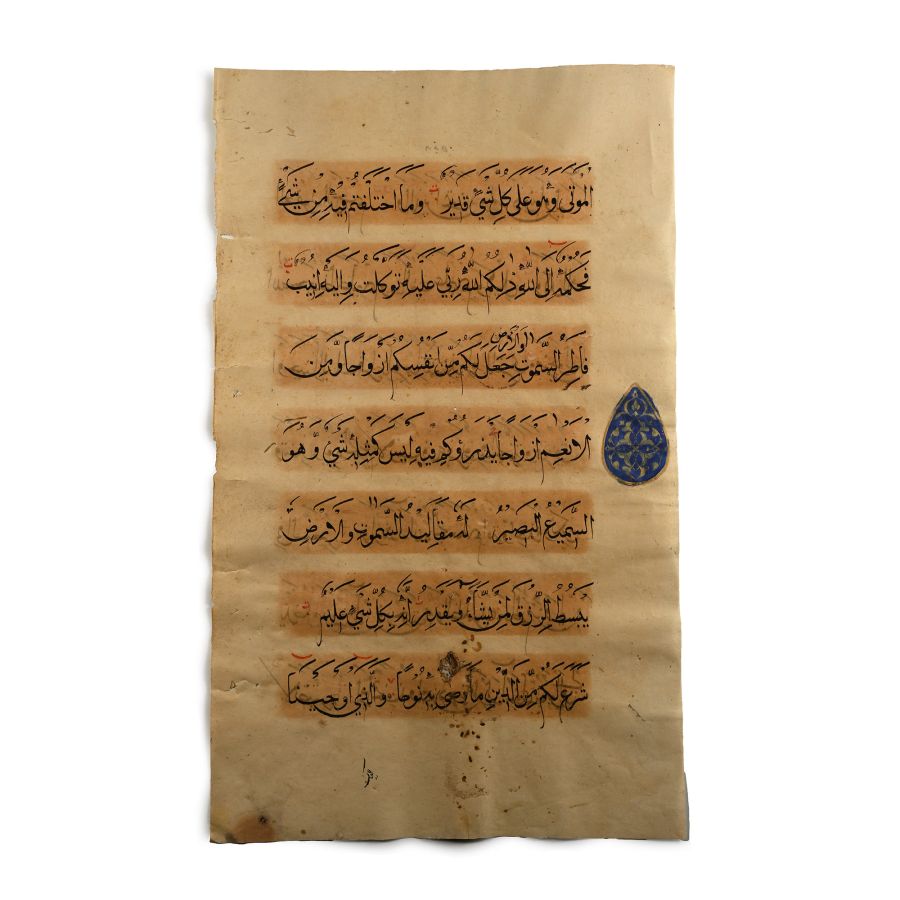 الْمَوْتٰى وَهُوَ عَلٰى كُلِّ شَيْءٍ قَدِيْرٌ وَمَا اخْتَلَفْتُمْ فِيْهِ مِنْ شَيْءٍ
فَحُكْمُهُ اِلَى اللّٰهِ ذٰلِكُمُ اللّٰهُ رَبِّيْ عَلَيْهِ تَوَكَّلْتُ وَاِلَيْهِ اُنِيْبُ
فَاطِرُ السَّمٰوٰتِ وَالْاَرْضِ جَعَلَ لَكُمْ مِّنْ اَنْفُسِكُمْ اَزْوَاجًا وَّمِنَ
الْاَنْعٰمِ اَزْوَاجًا يَذْرَؤُكُمْ فِيْهِ لَيْسَ كَمِثْلِهِ شَيْءٌ وَّهُوَ
السَّمِيْعُ الْبَصِيْرُ لَهُ مَقَالِيْدُ السَّمٰوٰتِ وَالْاَرْضِ
يَبْسُطُ الرِّزْقَ لِمَنْ يَّشَآءُ وَيَقْدِرُ اِنَّهُ بِكُلِّ شَيْءٍ عَلِيْمٌ
شَرَعَ لَكُمْ مِّنَ الدِّيْنِ مَا وَصّٰى بِهِ نُوْحًا وَّالَّذِيْ اَوْحَيْنَا